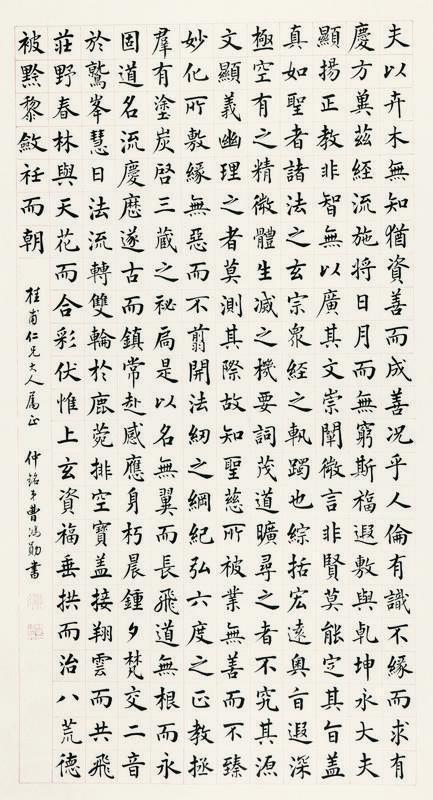 夫以卉木無知猶資善而成善況乎人倫有識不緣而求有
慶方冀茲經流施將日月而無窮斯福遐敷與乹坤永大夫
顯揚正教非智無以廣其文崇闡微言非賢莫能定其旨蓋
真如聖者諸法之玄宗眾經之軌躅也綜括宏遠奧旨遐深
極空有之精微體生滅之機要詞茂道曠尋之者不究其源
文顯義幽理之者莫測其際故知聖慈所被業無善而不臻
妙化所敷緣無惡而不翦開法紉之綱紀弘六度之正教拯
羣有塗炭啓三藏之秘扃是以名無翼而長飛道無根而永
固道名流慶歷遂古而鎮常赴感應身朽晨鍾夕梵交二音
於鷲峯慧日法流轉雙輪於鹿菀排空寶蓋接翔雲而共飛
莊野春林與天花而合彩伏惟上玄資福垂拱而治八荒德
被黔黎斂衽而朝
桂甫仁兄大人屬正 仲銘弟曹鴻勛書